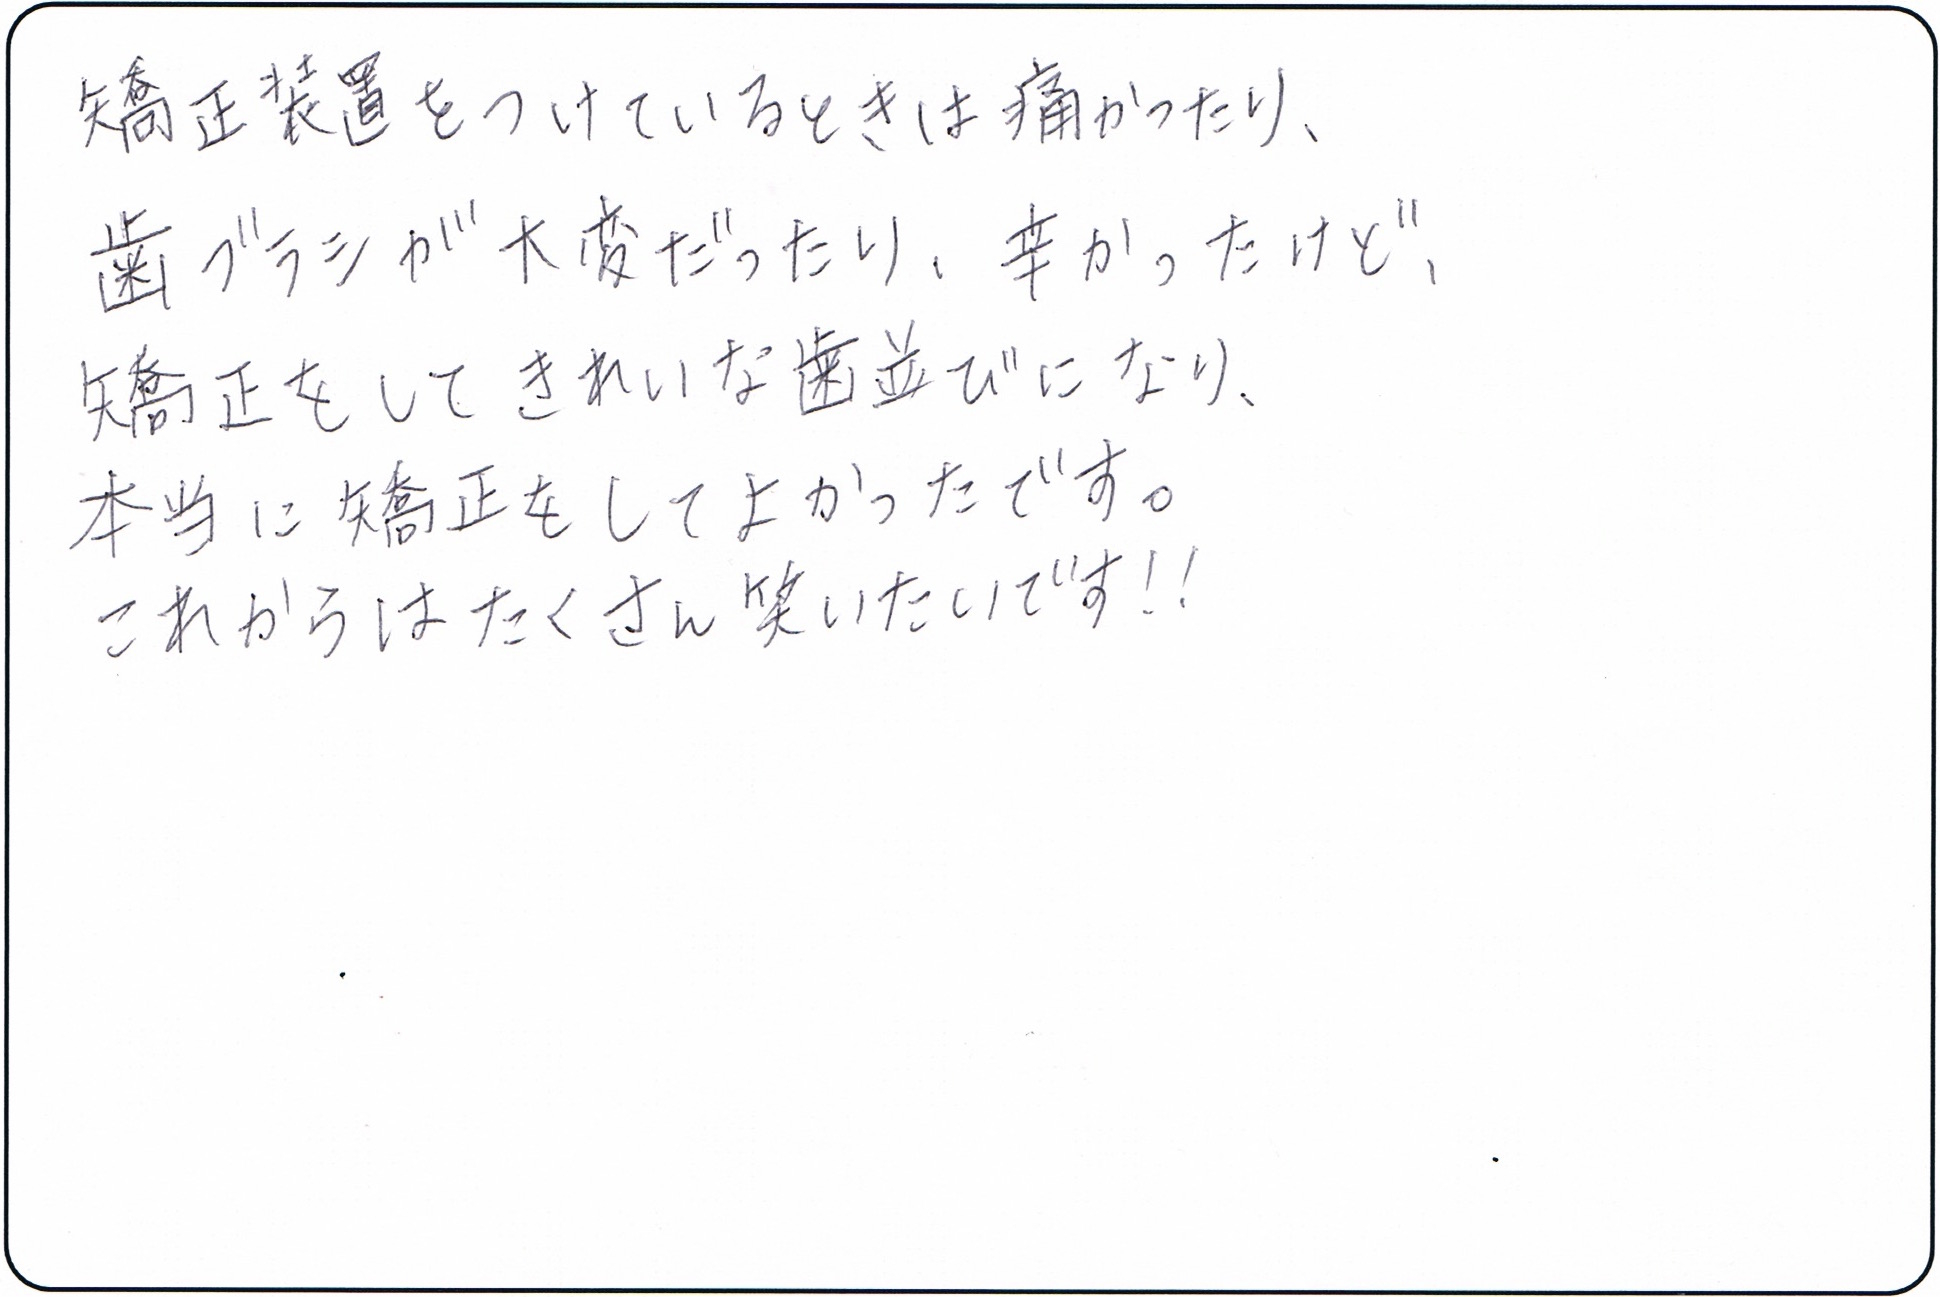 矯正装置をつけているときは痛かったり、
歯ブラシが大変だったり、辛かったけど、
矯正をしてきれいな歯並びになり、
本当に矯正をしてよかったです。
これからはたくさん笑いたいです!!